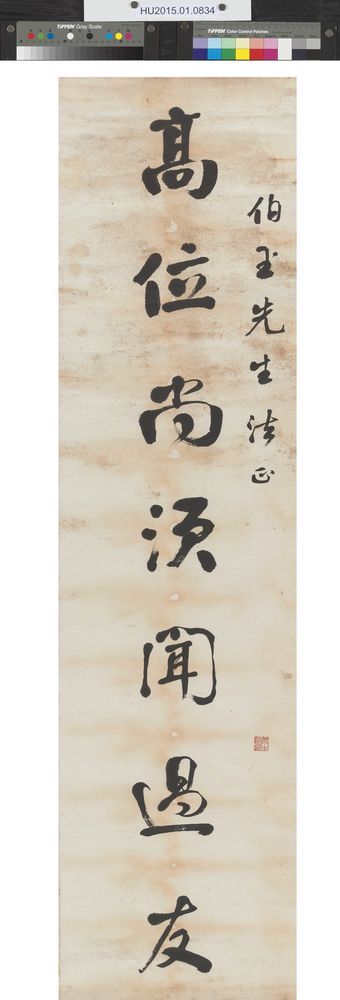 HU2015.01.0834
TIFFEN Gray Scale
TIFFEN Color Control Patches
伯玉先生法正
高位尚須聞過友